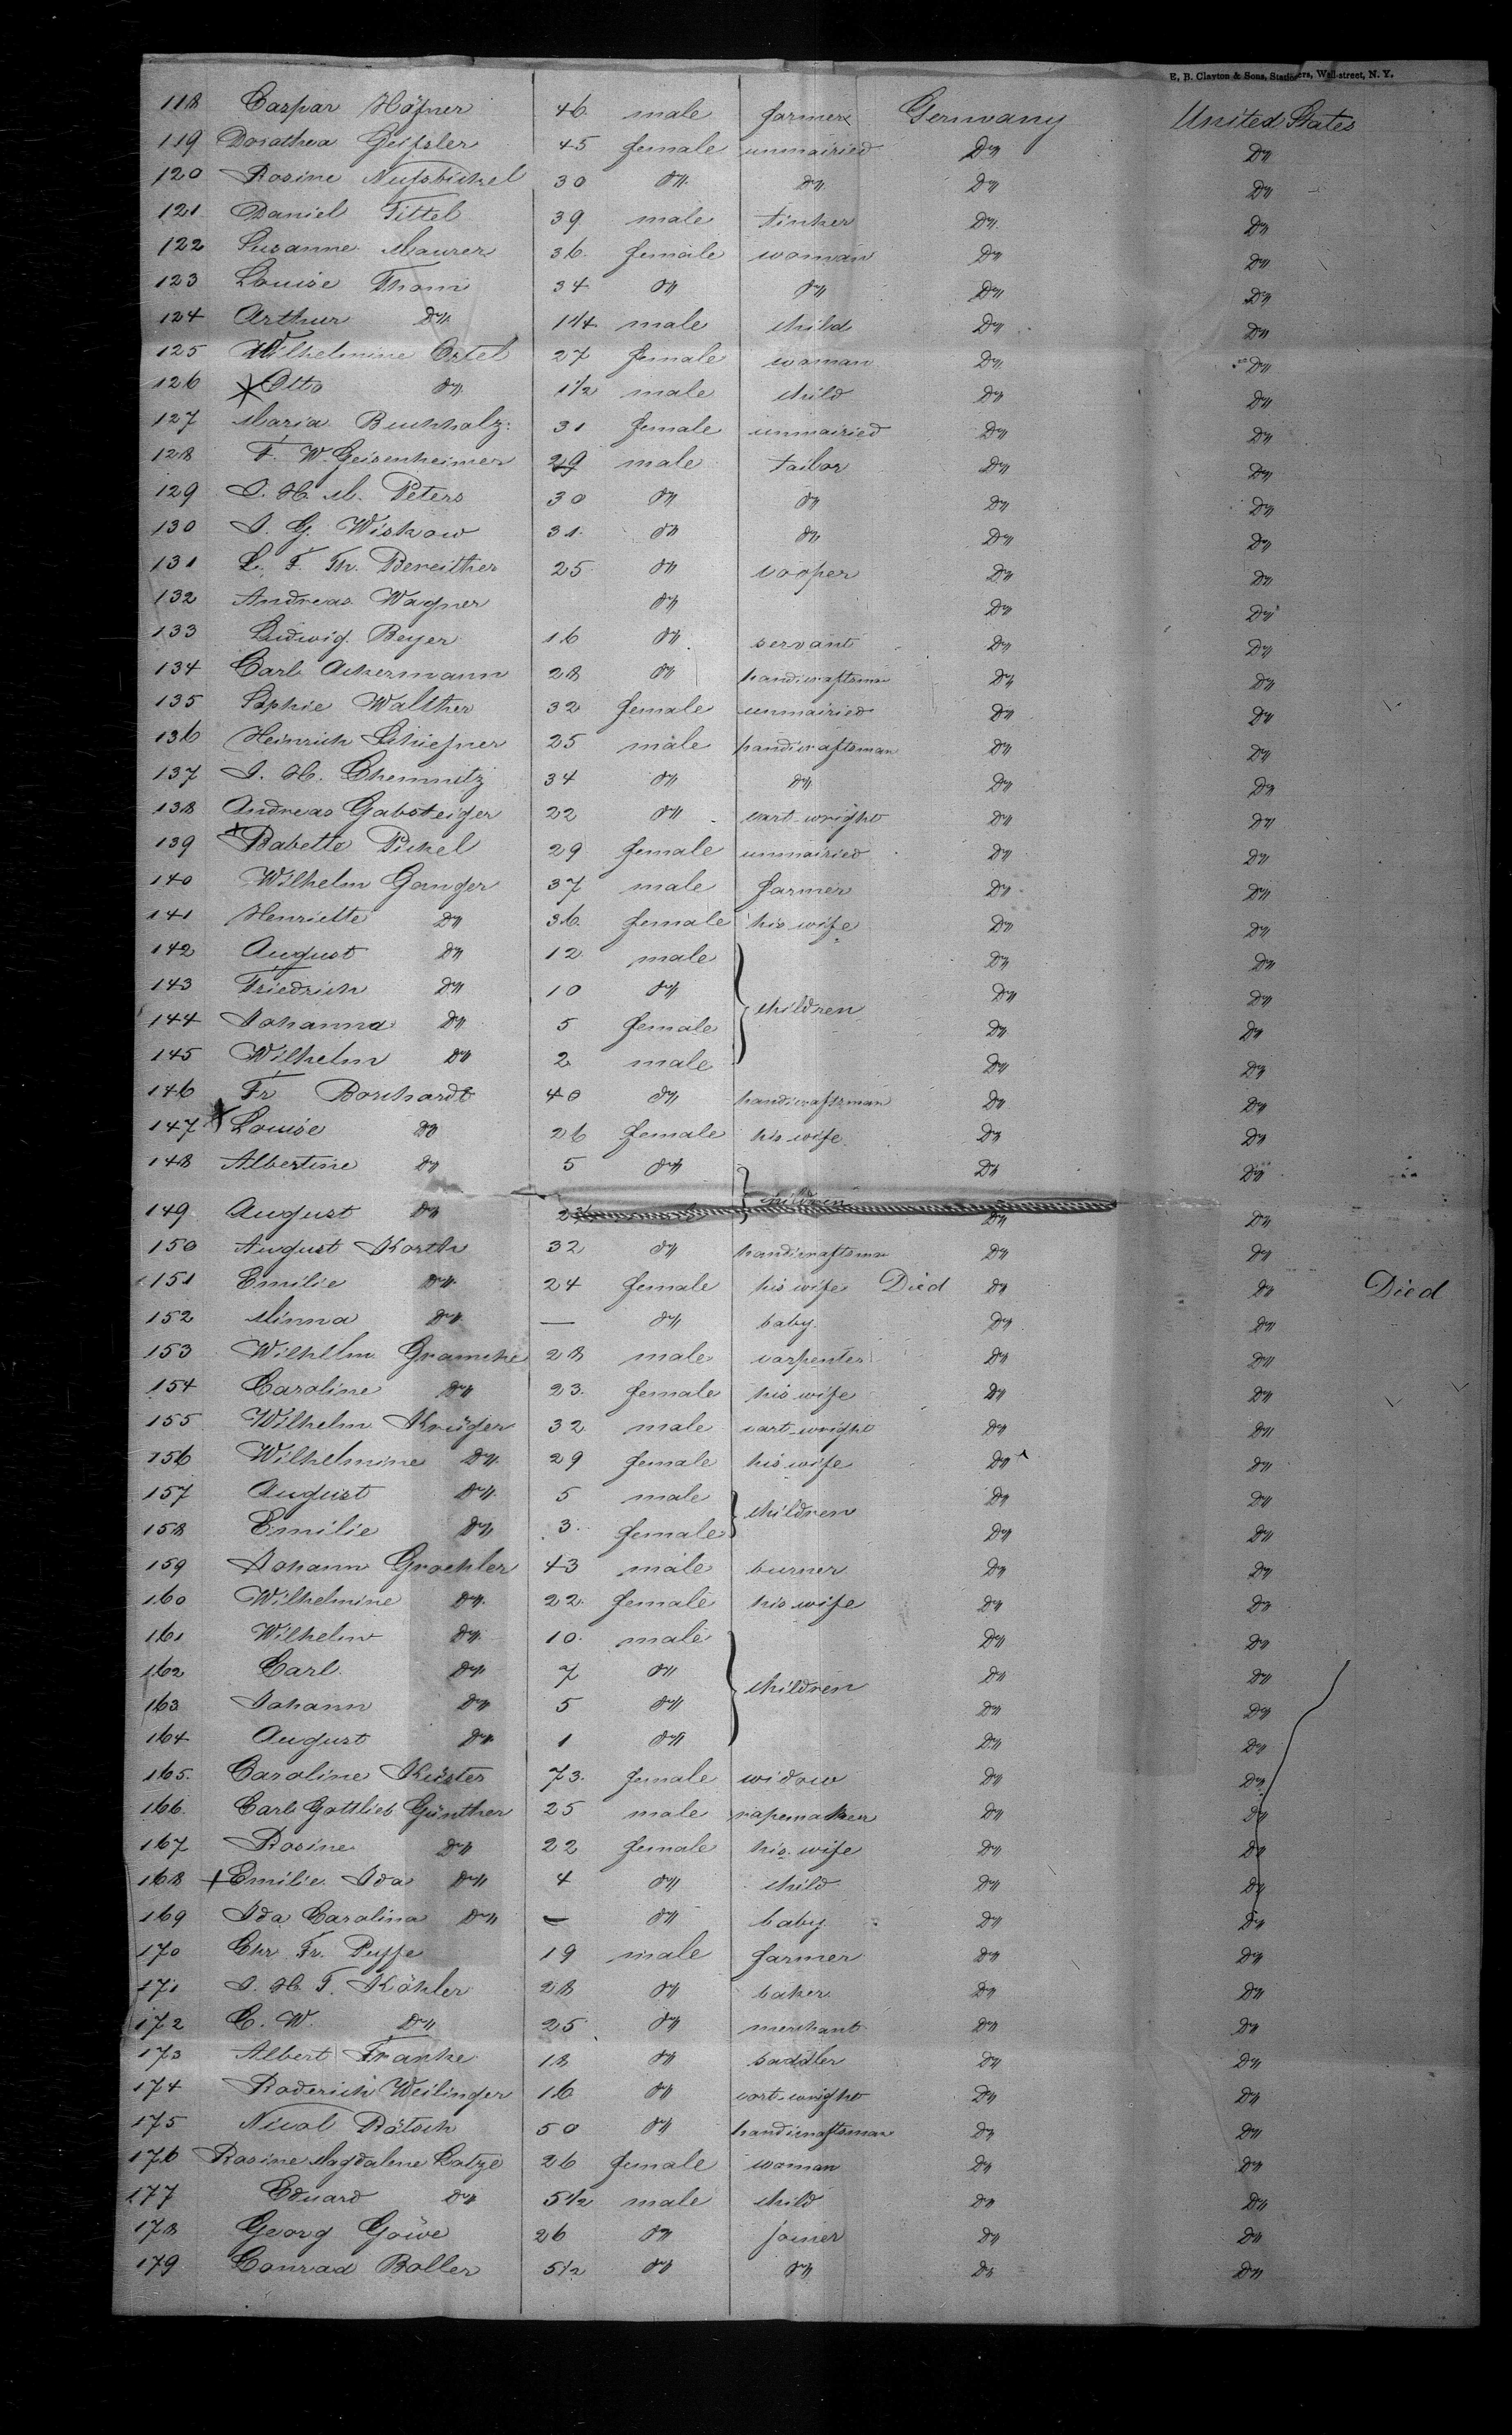 E. B. Clayton & Sons, Stationers, Wall-street, N. Y.
118 Caspar Höfner 46 male farmer Germany United States
119 Dorathea Geifsler 45 female unmairied Do Do
120 Rosine Nufsbickel 30 do do Do Do
121 Daniel Tittel 39 male tinker Do Do
122 Susanne Maurer 36 female woman Do Do
123 Louise Thom 34 do do Do Do
124 Arthur Do 1 1/4 male child Do Do
125 Wilhelmine Ortel 27 female woman Do Do
126 Otto do 1 1/2 male child Do Do
127 Maria Buchholz 31 female unmairied Do Do
128 F. W. Geisenheimer 29 male tailor Do Do
129 J. H. M. Peters 30 do do Do Do
130 J. G. Wiskow 31 do do Do Do
131 L. F. Th. Bereither 25 do cooper Do Do
132 Andreas Wagner do Do Do
133 Ludwig Beyer 16 do servant Do Do
134 Carl Ackermann 28 do handicraftsma Do Do
135 Sophie Walther 32 female unmairied Do Do
136 Heinrich Schiefner 25 male handicraftsman Do Do
137 J. H. Chemnitz 34 do do Do Do
138 Andreas Gabsteiger 22 do cart-wright Do Do
139 Babette Pickel 29 female unmairied Do Do
140 Wilhelm Ganger 37 male farmer Do Do
141 Henriette Do 36 female his wife Do Do
142 August Do 12 male Do Do
143 Friedrich Do 10 do children Do Do
144 Johanna Do 5 female Do Do
145 Wilhelm Do 2 male Do Do
146 Fr Borchardt 40 do handicraftsman Do Do
147 Louise Do 26 female his wife Do Do
148 Albertine Do 5 do Do Do
149 August Do children Do Do
150 August Korth 32 do handicraftsma Do Do
151 Emilie Do 24 female his wife Died Do Do Died
152 Minna Do — do baby Do Do
153 Wilhelm Gramcke 28 male carpenter Do Do
154 Caroline Do 23 female his wife Do Do
155 Wilhelm Krüger 32 male cart-wright Do Do
156 Wilhelmine Do 29 female his wife Do Do
157 August Do 5 male children Do Do
158 Emilie Do 3 female Do Do
159 Johann Groehler 43 male burner Do Do
160 Wilhelmine Do 22 female his wife Do Do
161 Wilhelm Do 10 male Do Do
162 Carl Do 7 do children Do Do
163 Johann Do 5 do Do Do
164 August Do 1 do Do Do
165 Caroline Küster 73 female widow Do Do
166 Carl Gottlieb Günther 25 male ropemaker Do Do
167 Rosine Do 22 female his wife Do Do
168 Emilie Ida Do 4 do child Do Do
169 Ida Carolina Do — do baby Do Do
170 Chr Fr. Puffe 19 male farmer Do Do
171 J. H. F. Köhler 28 do baker Do Do
172 C. W. Do 25 do merchant Do Do
173 Albert Franke 18 do saddler Do Do
174 Roderich Weilinger 16 do cart-wright Do Do
175 Nicol Rätsch 50 do handicraftsman Do Do
176 Rosine Magdalene Lotze 26 female woman Do Do
177 Eduard Do 5 1/2 male child Do Do
178 Georg Göwe 26 do joiner Do Do
179 Conrad Boller 51/2 do do Do Do